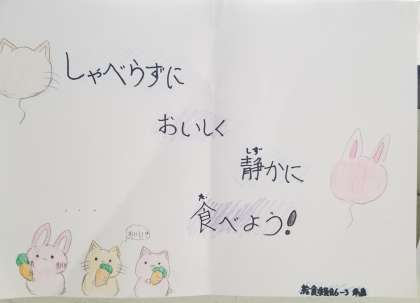 しゃべらずに
おいしく
静かに
しず
食べよう!
た
おいしい
給食委員6-3